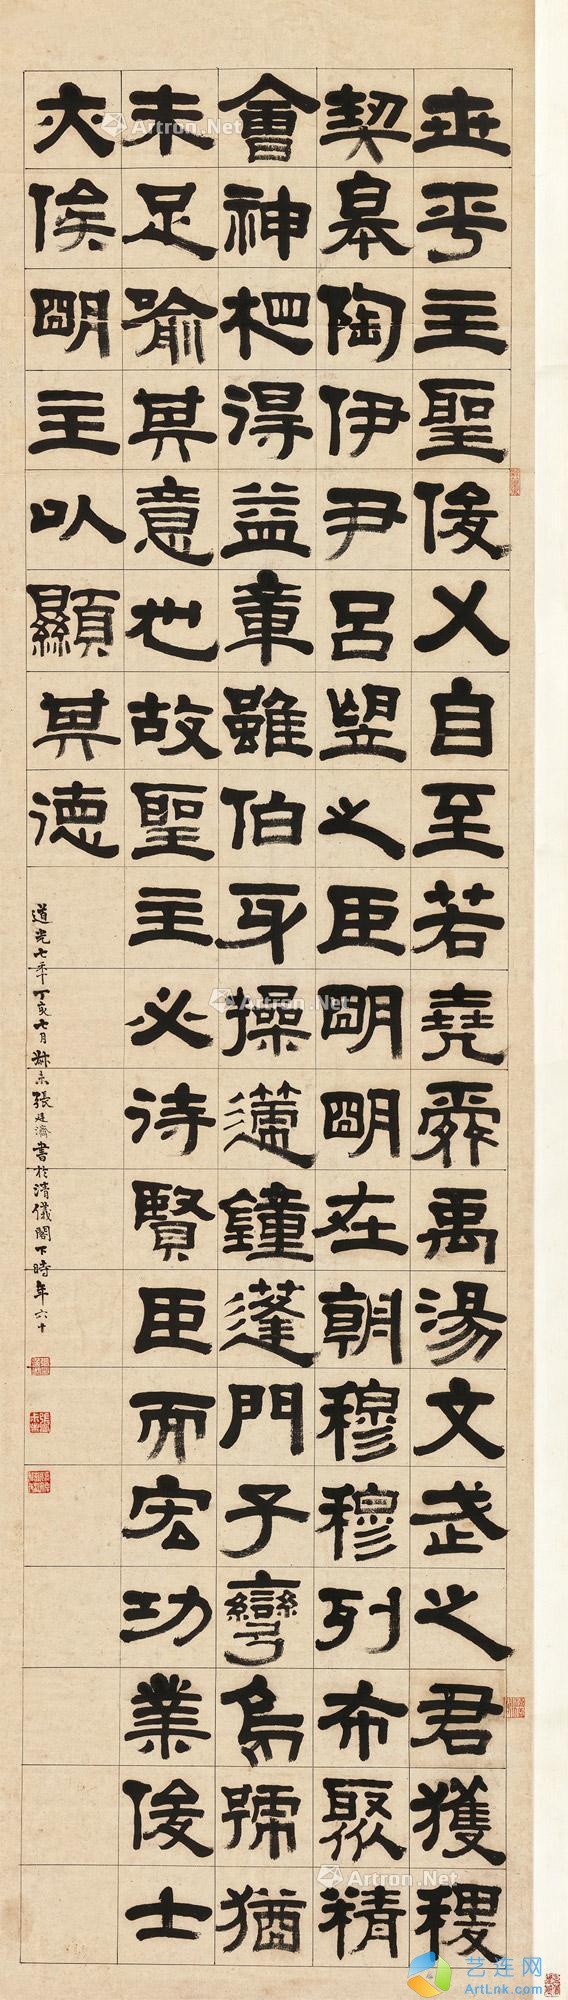 世平主聖俊乂自至若堯舜禹湯文武之君獲稷
契皋陶伊尹呂望之臣明明在朝穆穆列布聚精
會神相得益章雖伯牙操鐘蓬門子彎烏號猶
未足喻其意也故聖主必待賢臣而宏功業俊士
亦俟明主以顯其德
道光七年丁亥七月叔未張廷濟書於清儀閣下時年六十
Artron.Net
Artron.Net
Artron.Net
Artron.Net
艺连网
ArtLnk.com